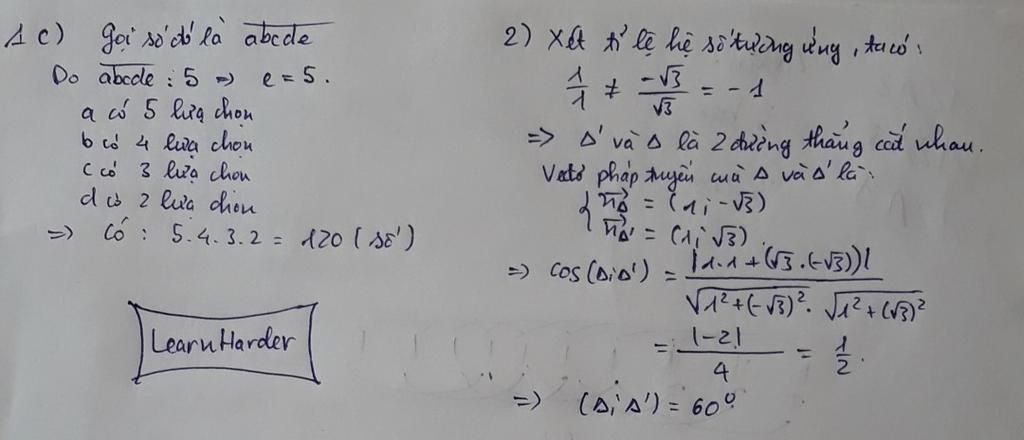 1 c) Gọi số đó là \overline{abcde}
Do \overline{abcde} ⋮ 5 => e = 5.
a có 5 lựa chọn
b có 4 lựa chọn
c có 3 lựa chọn
d có 2 lựa chọn
=> Có : 5.4.3.2 = 120 (số)
LearnHarder
2) Xét tỉ lệ hệ số tương ứng, ta có:
1/1 ≠ -√3/√3 = -1
=> Δ' và Δ là 2 đường thẳng cắt nhau.
Vectơ pháp tuyến của Δ và Δ' là:
{ \vec{n_Δ} = (1; -√3)
\vec{n_Δ'} = (1; √3).
=> cos(Δ; Δ') = |1.1 + (√3.(-√3))| / √(1² + (-√3)²) . √(1² + (√3)²)
= |-2| / 4 = 1/2.
=> (Δ; Δ') = 60°